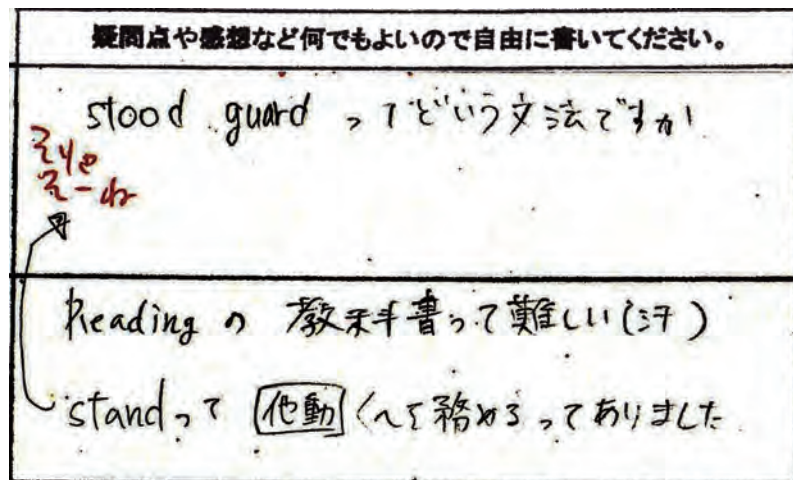 疑問点や感想など何でもよいので自由に書いてください。
stood guard ってどいう文法ですか
そりゃ
そーね
Readingの教科書って難しい(汗)
standって 他動 〈〜を務める〉ってありました